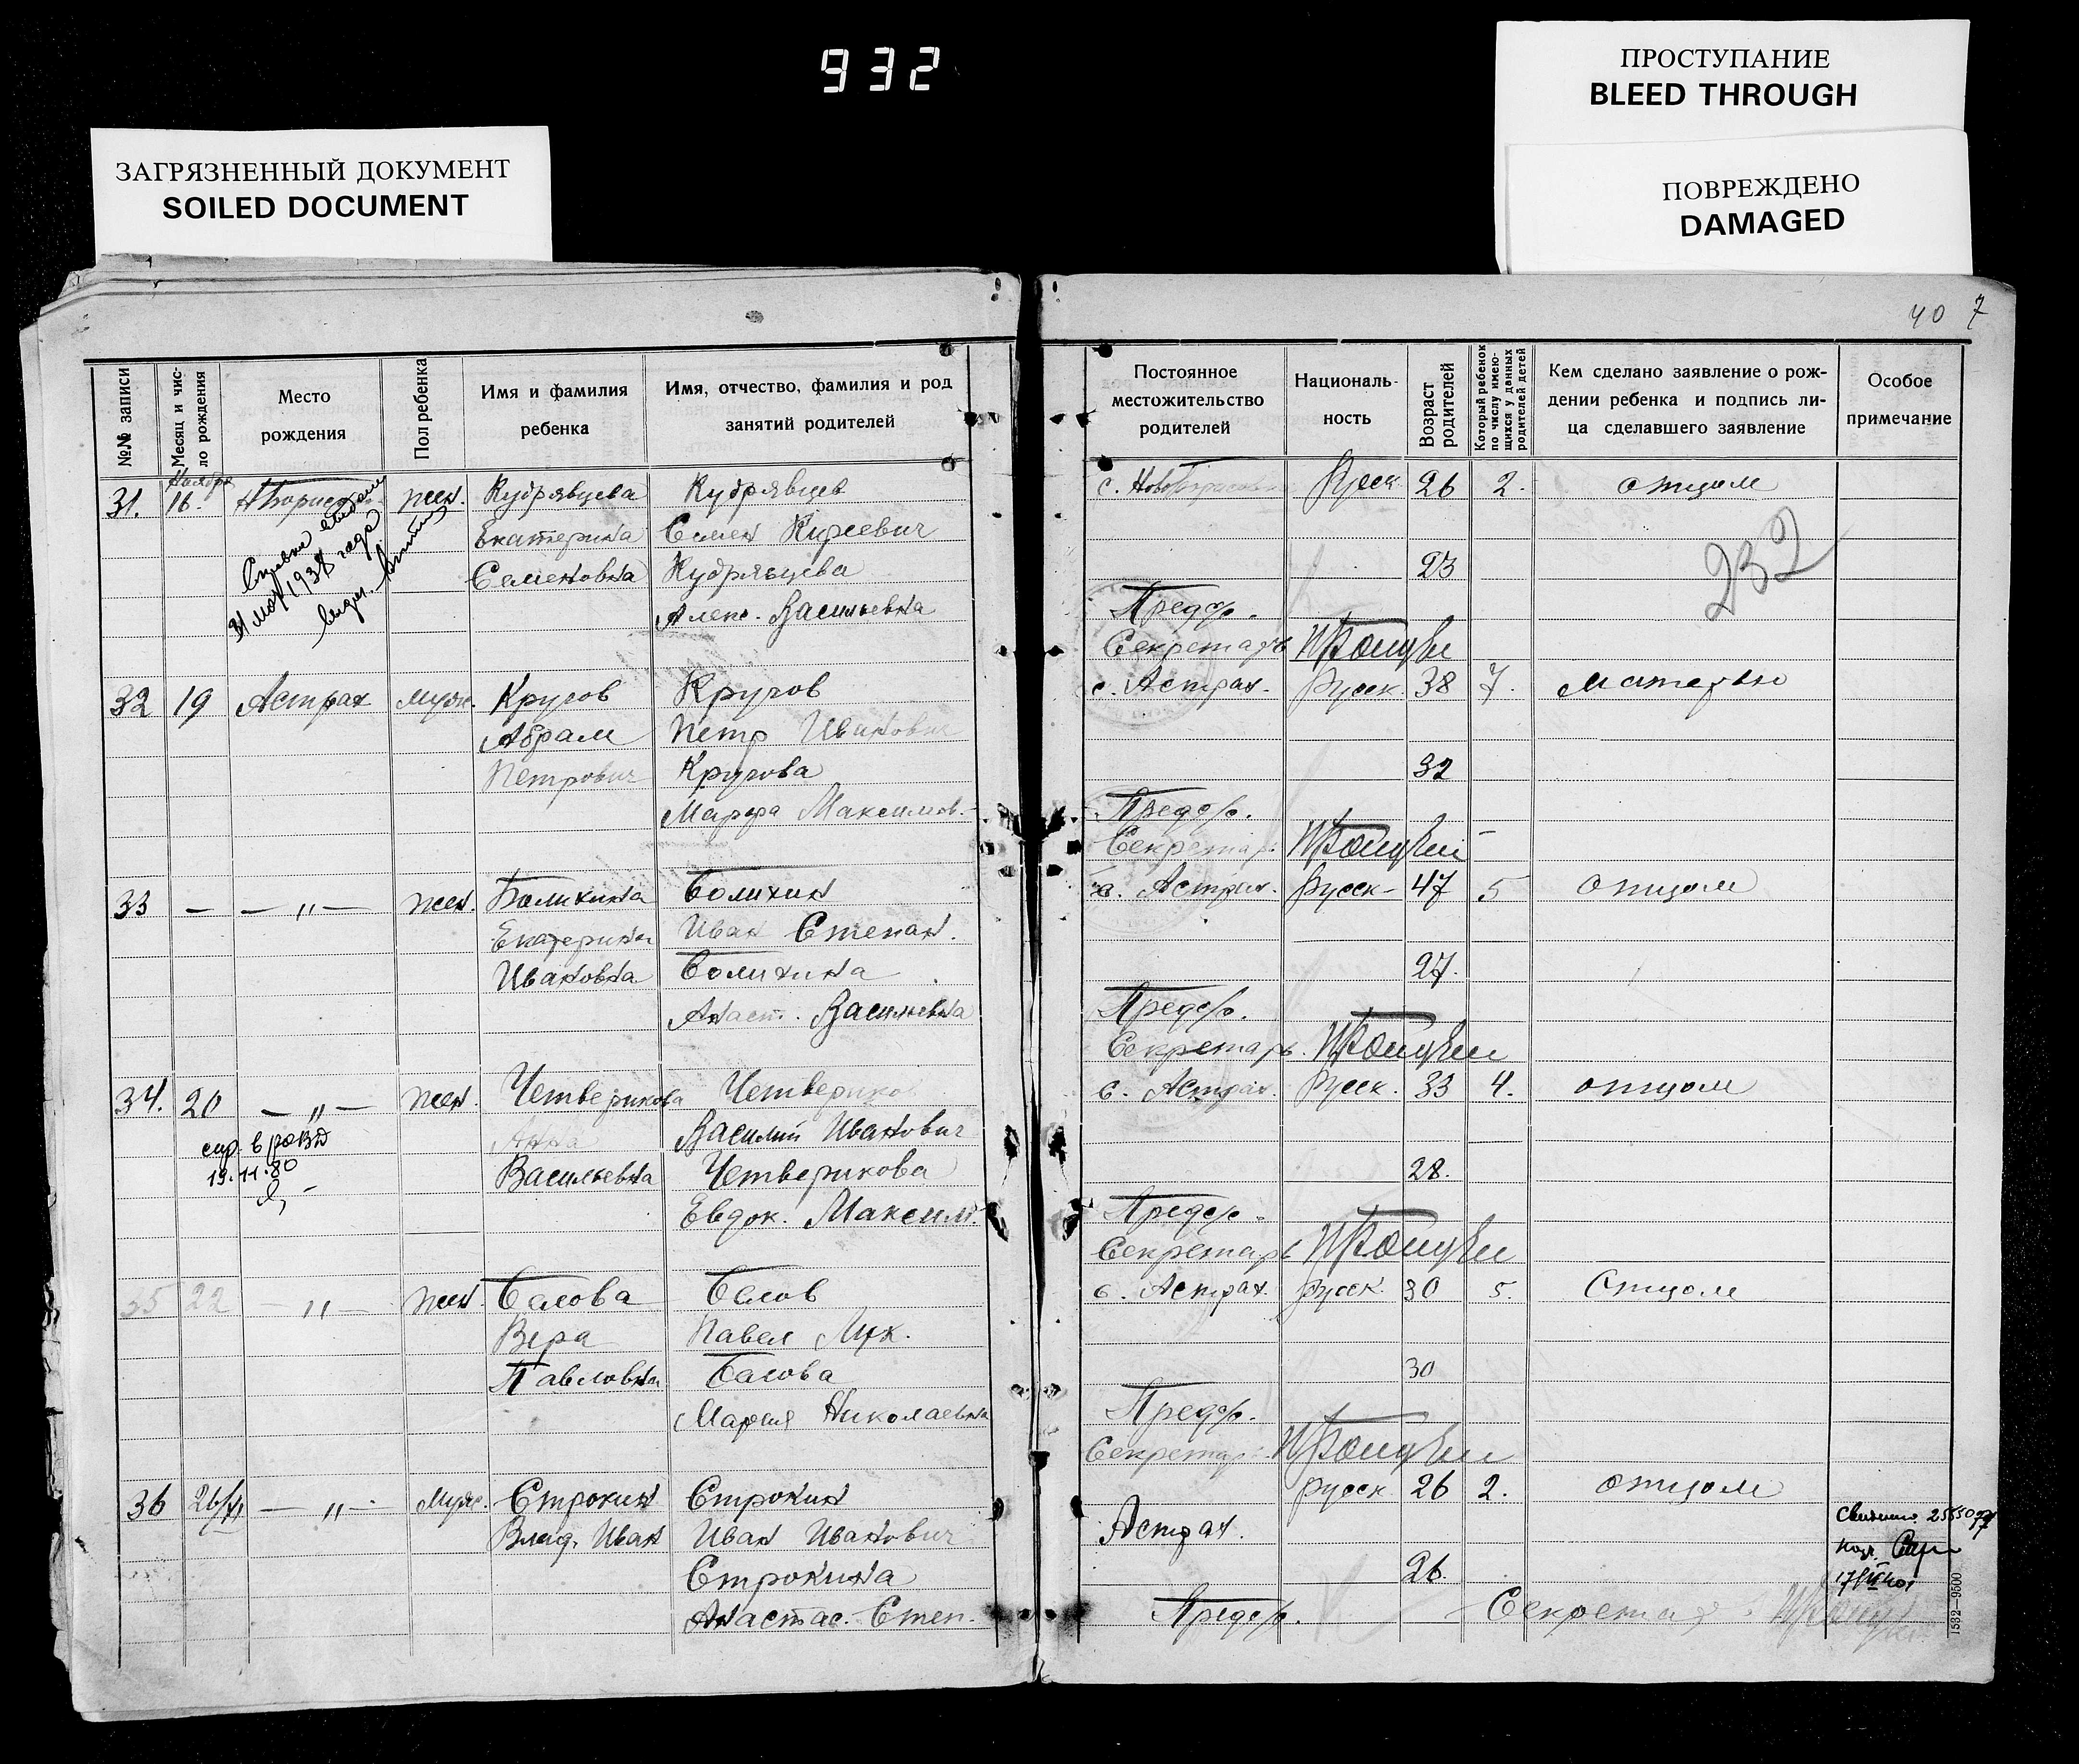 932
ПРОСТУПАНИЕ
BLEED THROUGH
ЗАГРЯЗНЕННЫЙ ДОКУМЕНТ
SOILED DOCUMENT
ПОВРЕЖДЕНО
DAMAGED
40 7
№№ записи
Месяц и чис-
ло рождения
Место
рождения
Пол ребенка
Имя и фамилия
ребенка
Имя, отчество, фамилия и род
занятий родителей
Постоянное
местожительство
родителей
Националь-
ность
Возраст
родителей
Который ребенок
по числу имею-
щихся у данных
родителей детей
Кем сделано заявление о рож-
дении ребенка и подпись ли-
ца сделавшего заявление
Особое
примечание
Ноября
31. 16. жен. Кудрявцева Кудрявцев с. Русск 26 2. отцом
Екатерина Семен Киреевич
Семеновна Кудрявцева 23
Алекс. Васильевна Предс/с.
Секретарь
Справка
31 мая 1938 года
232
32 19 Астрах муж. Кругов Кругов с. Астрах. Русск. 38 7. матерью
Абрам Петр Иванович
Петрович Кругова 32
Марфа Максимов. Предс/с.
Секретар.
33 — — „ — жен. Болихина Болихин с. Астрах. Русск- 47 5 отцом
Екатерина Иван Степан.
Ивановна Болихина 27.
Анаст. Васильевна Предс/с.
Секретарь
34. 20 — „ — жен. Четверикова Четвериков с. Астрах. Русск. 33 4. отцом
Анна Василий Иванович
Васильевна Четверикова 28.
Евдок. Максим. Предс/с.
Секретарь
19.11.80
35 22 — „ — жен. Басова Басов с. Астрах. русск. 30 5. Отцом
Вера Павел Лук.
Павловна Басова 30
Мария Николаевна Предс/с.
Секретар.
36 26/XI — „ — Муж. Строкин Строкин русск 26 2. отцом
Влад. Иван Иван Иванович Астрах.
Строкина 26.
Анастас. Степ. Предс/с. Секретар
1532—9500